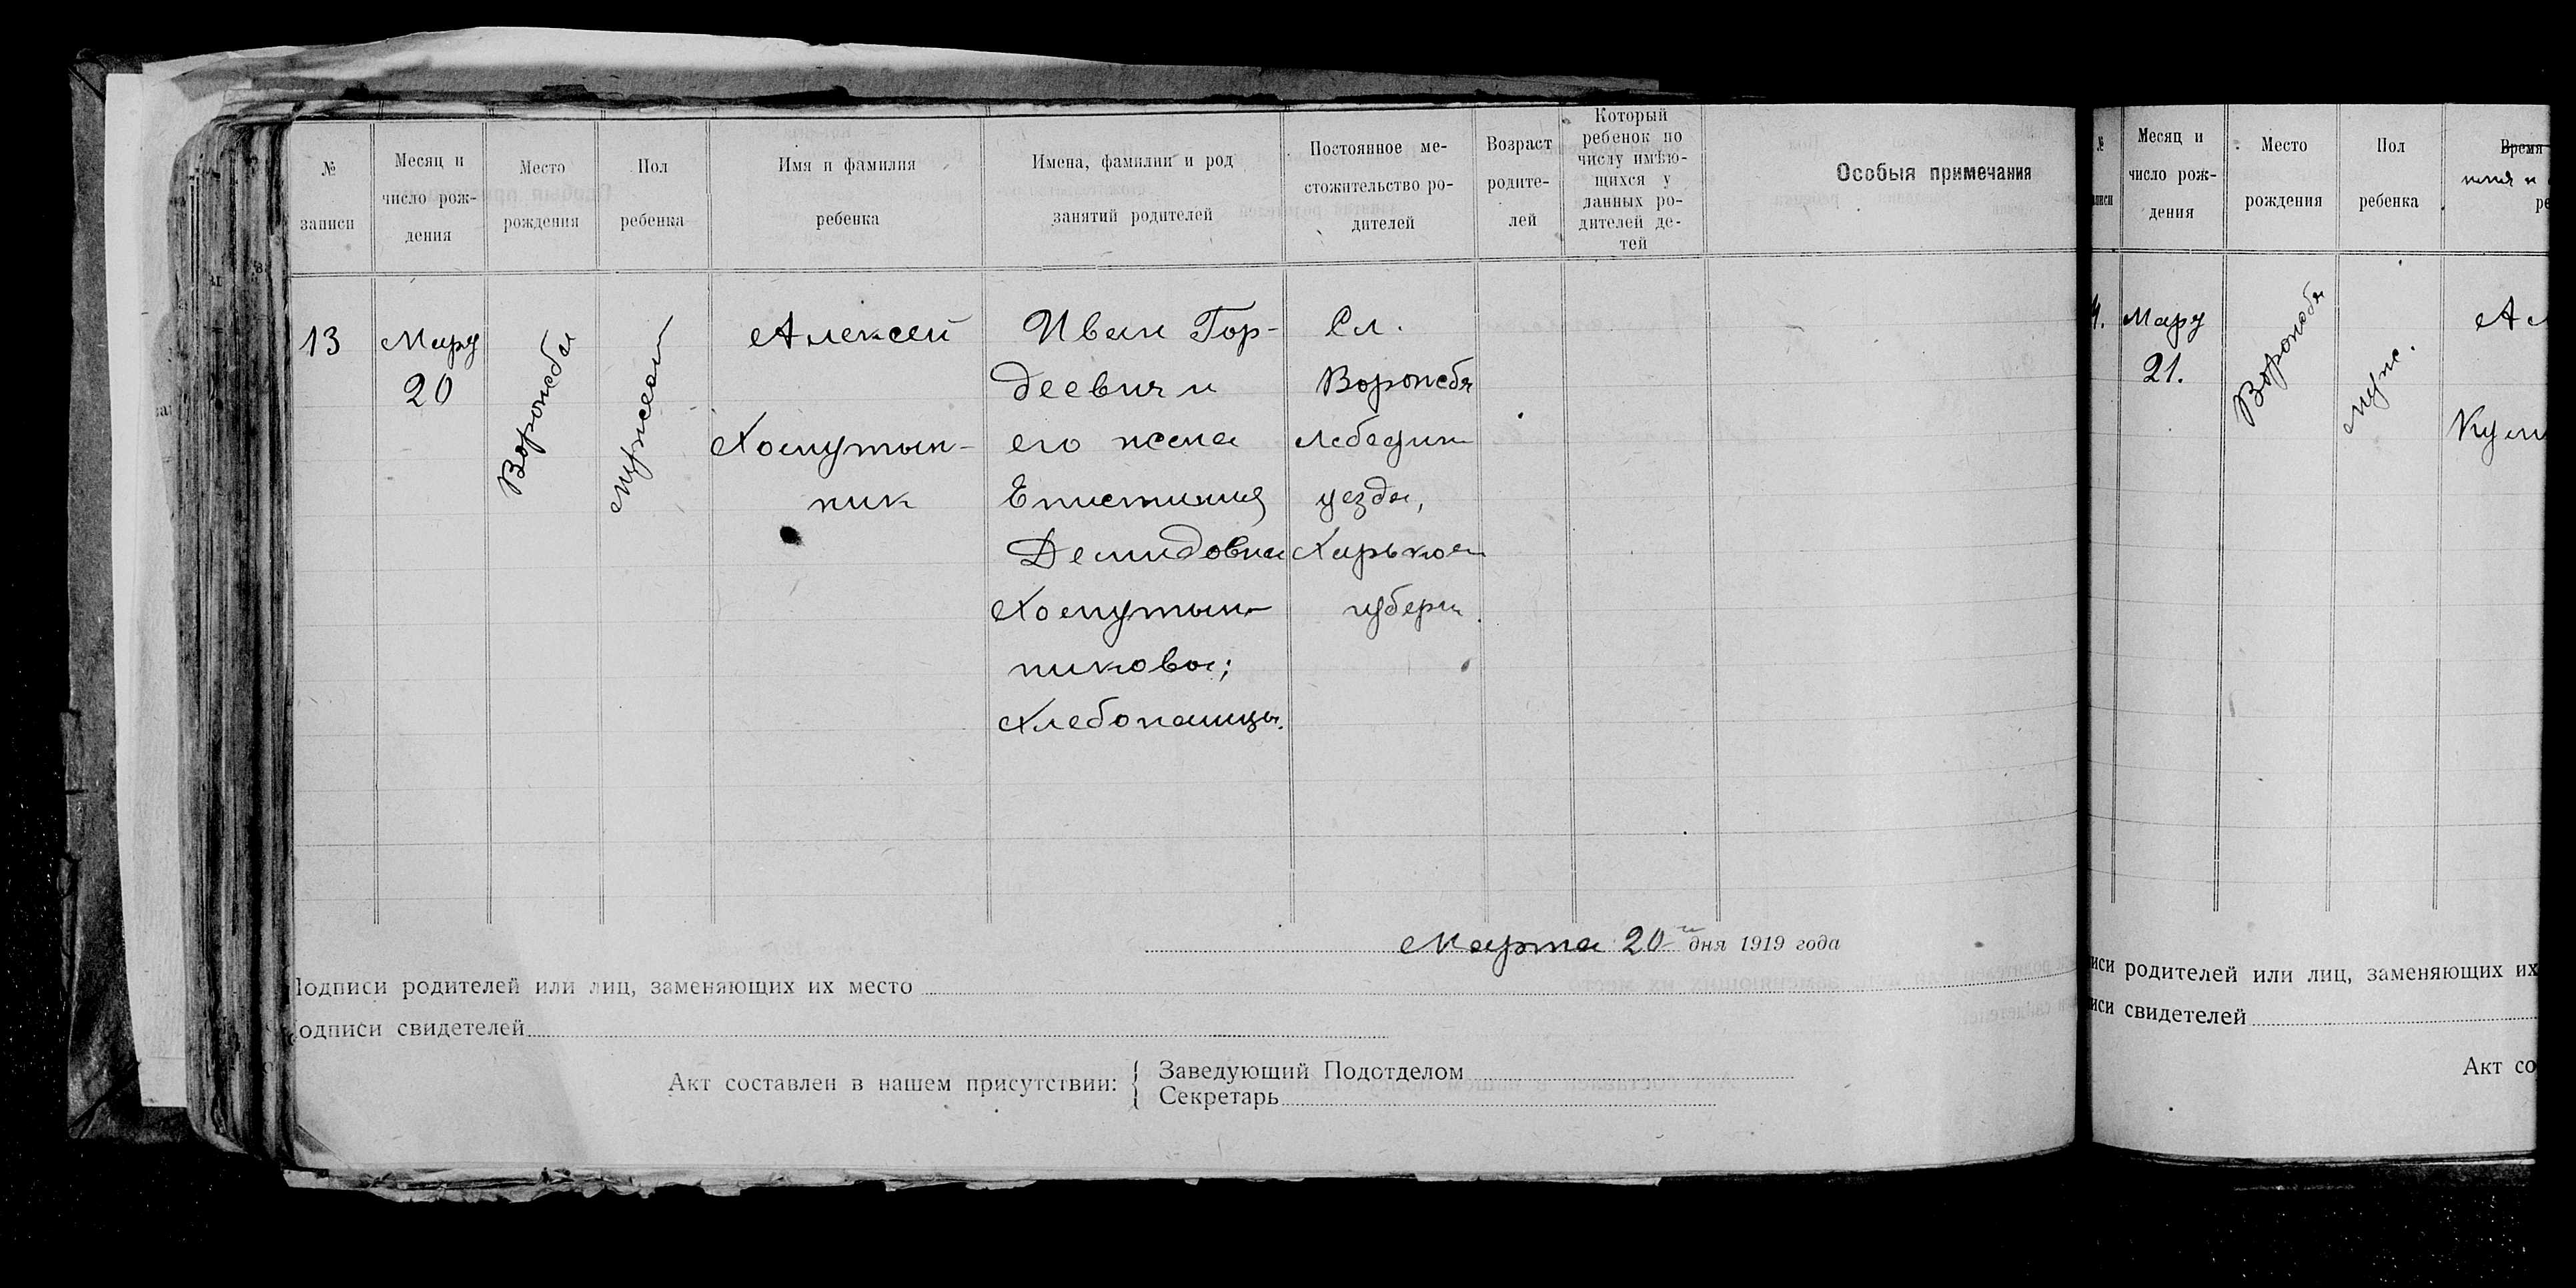 №
записи
Месяц и
число рож-
дения
Место
рождения
Пол
ребенка
Имя и фамилия
ребенка
Имена, фамилии и род
занятий родителей
Постоянное ме-
стожительство ро-
дителей
Возраст
родите-
лей
Который
ребенок по
числу имѣю-
щихся у
данных ро-
дителей де-
тей
Особыя примечания
13
Март
20
Ворожба
мужеский
Алексей
Хомутын-
ник
Иван Гор-
деевич и
его жена
Епистимия
Демидовна
Хомутын-
никовы;
хлебопашцы.
Сл.
Ворожба
Лебедин
уезда,
Харьков
губерн.
Марта 20 дня 1919 года
Подписи родителей или лиц, заменяющих их место
Подписи свидетелей
Акт составлен в нашем присутствии:
Заведующий Подотделом
Секретарь
№
Месяц и
число рож-
дения
Место
рождения
Пол
ребенка
Время
Март
21.
Ворожба
муж.
родителей или лиц, заменяющих их
свидетелей
Акт со